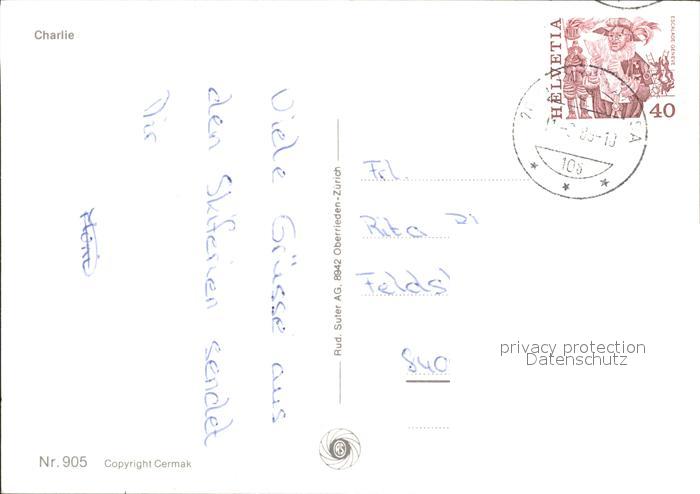 Charlie
HELVETIA
ESCALADE GENÈVE
40
108
Viele Grüsse aus
den Skiferien sendet
Dir
Frl.
Rita
Felds
840
privacy protection
Datenschutz
Rud. Suter AG, 8942 Oberrieden-Zürich
Nr. 905 Copyright Cermak